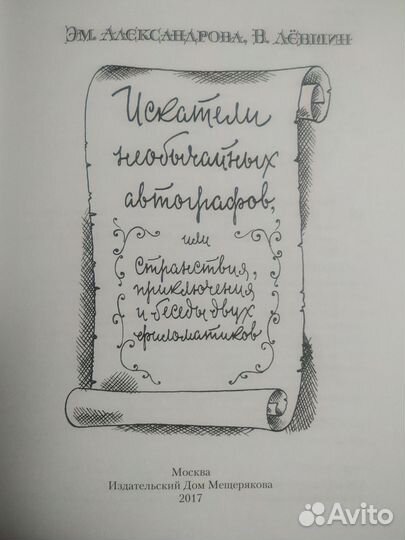 Эм. Александрова, В. Лёвшин
Искатели
необычайных
автографов,
или
Странствия,
приключения
и беседы двух
филоматиков
Москва
Издательский Дом Мещерякова
2017
Avito